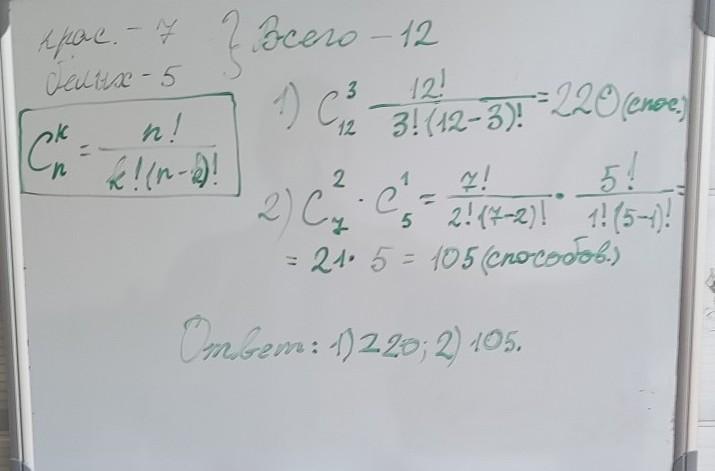 крас. - 7 } Всего - 12
белых - 5
C_n^k = n! / k!(n-k)!
1) C_12^3 12! / 3!(12-3)! = 220 (спос.)
2) C_7^2 · C_5^1 = 7! / 2!(7-2)! · 5! / 1!(5-1)! =
= 21 · 5 = 105 (способов.)
Ответ: 1) 220; 2) 105.